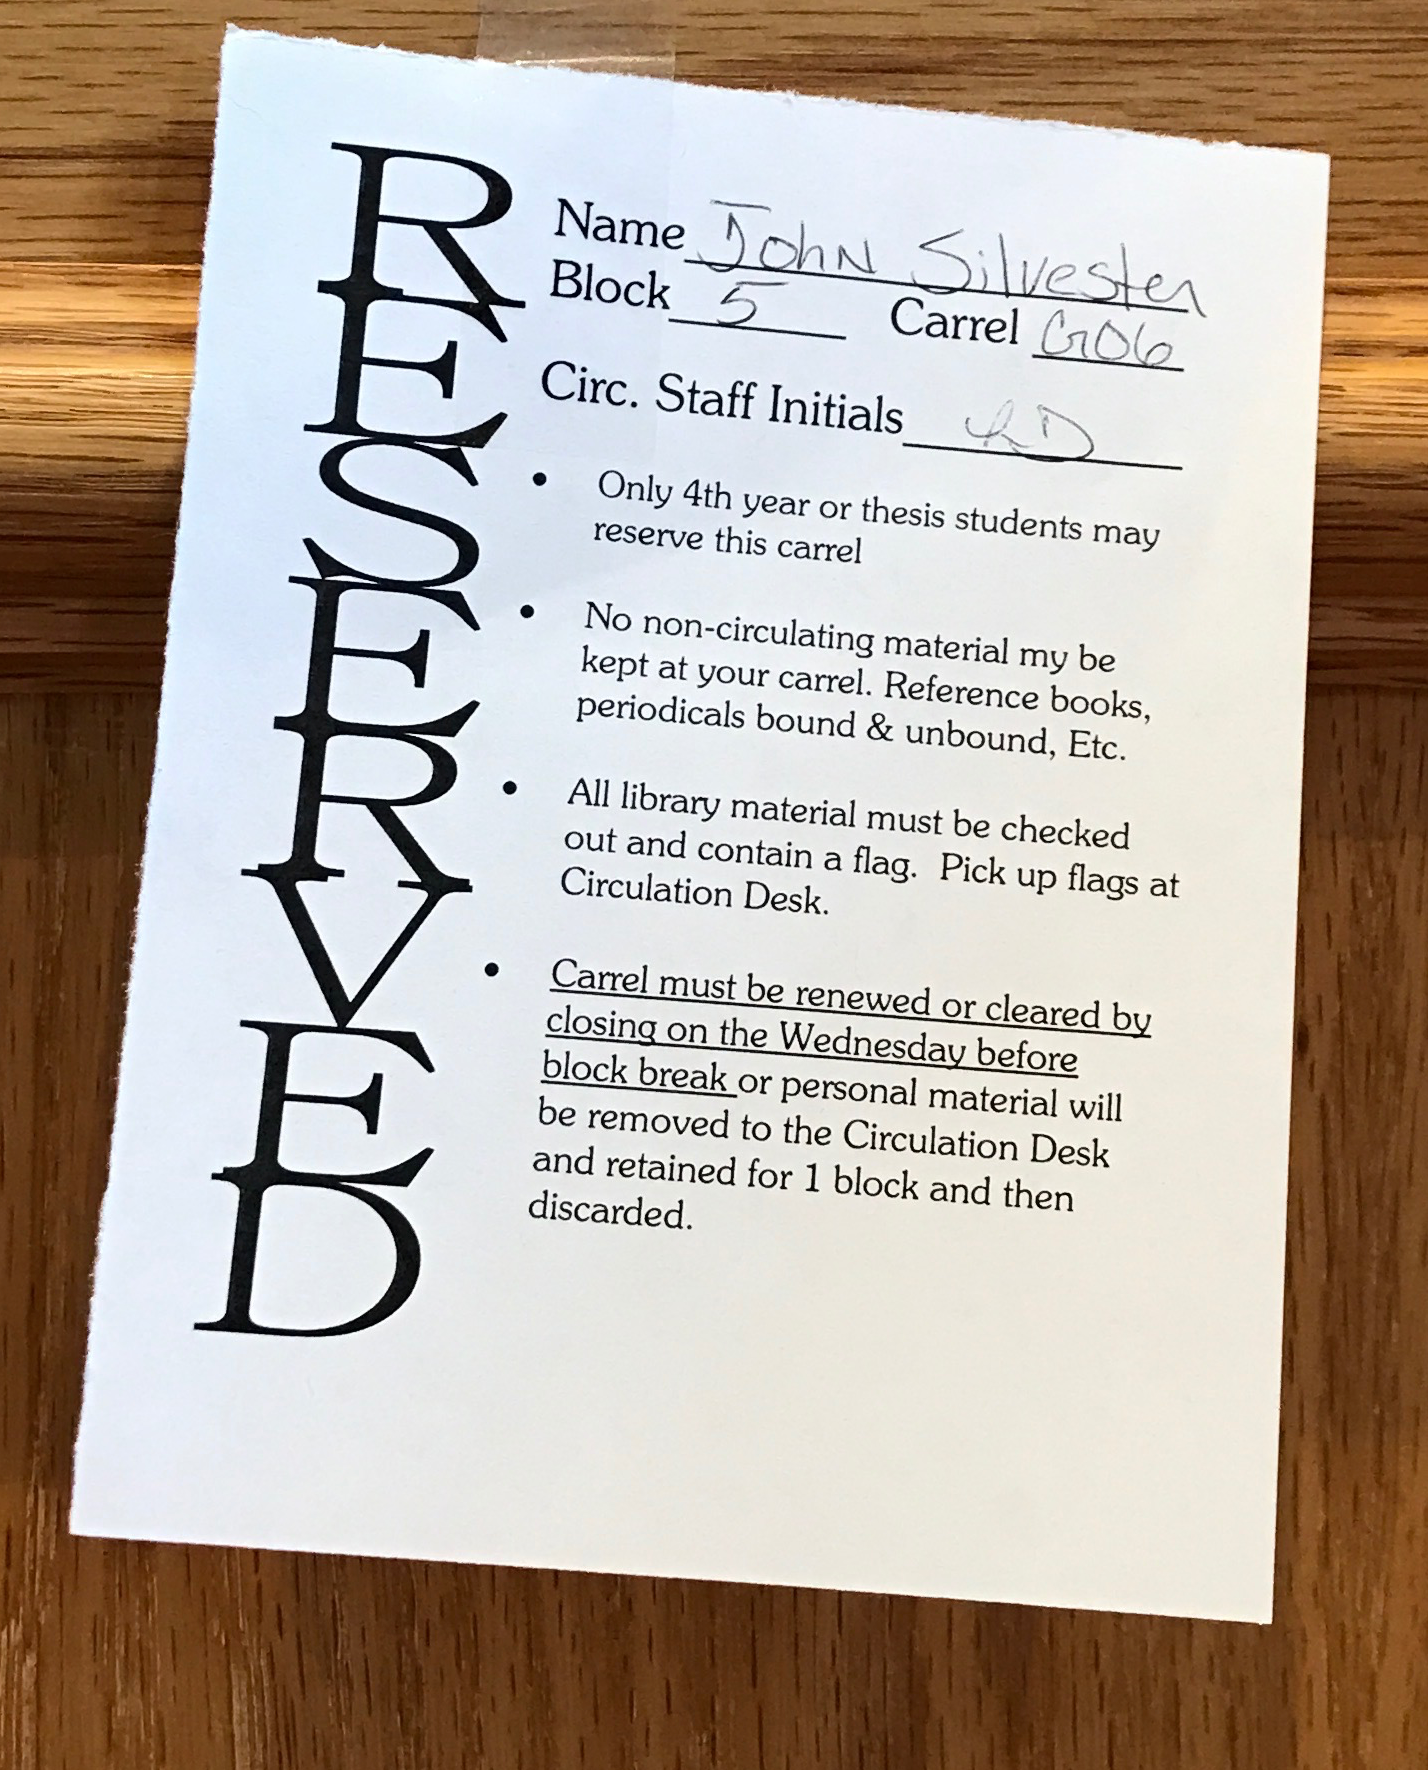 RESERVED
Name John Silvester
Block 5 Carrel G06
Circ. Staff Initials
• Only 4th year or thesis students may
reserve this carrel
• No non-circulating material my be
kept at your carrel. Reference books,
periodicals bound & unbound, Etc.
• All library material must be checked
out and contain a flag. Pick up flags at
Circulation Desk.
• Carrel must be renewed or cleared by
closing on the Wednesday before
block break or personal material will
be removed to the Circulation Desk
and retained for 1 block and then
discarded.